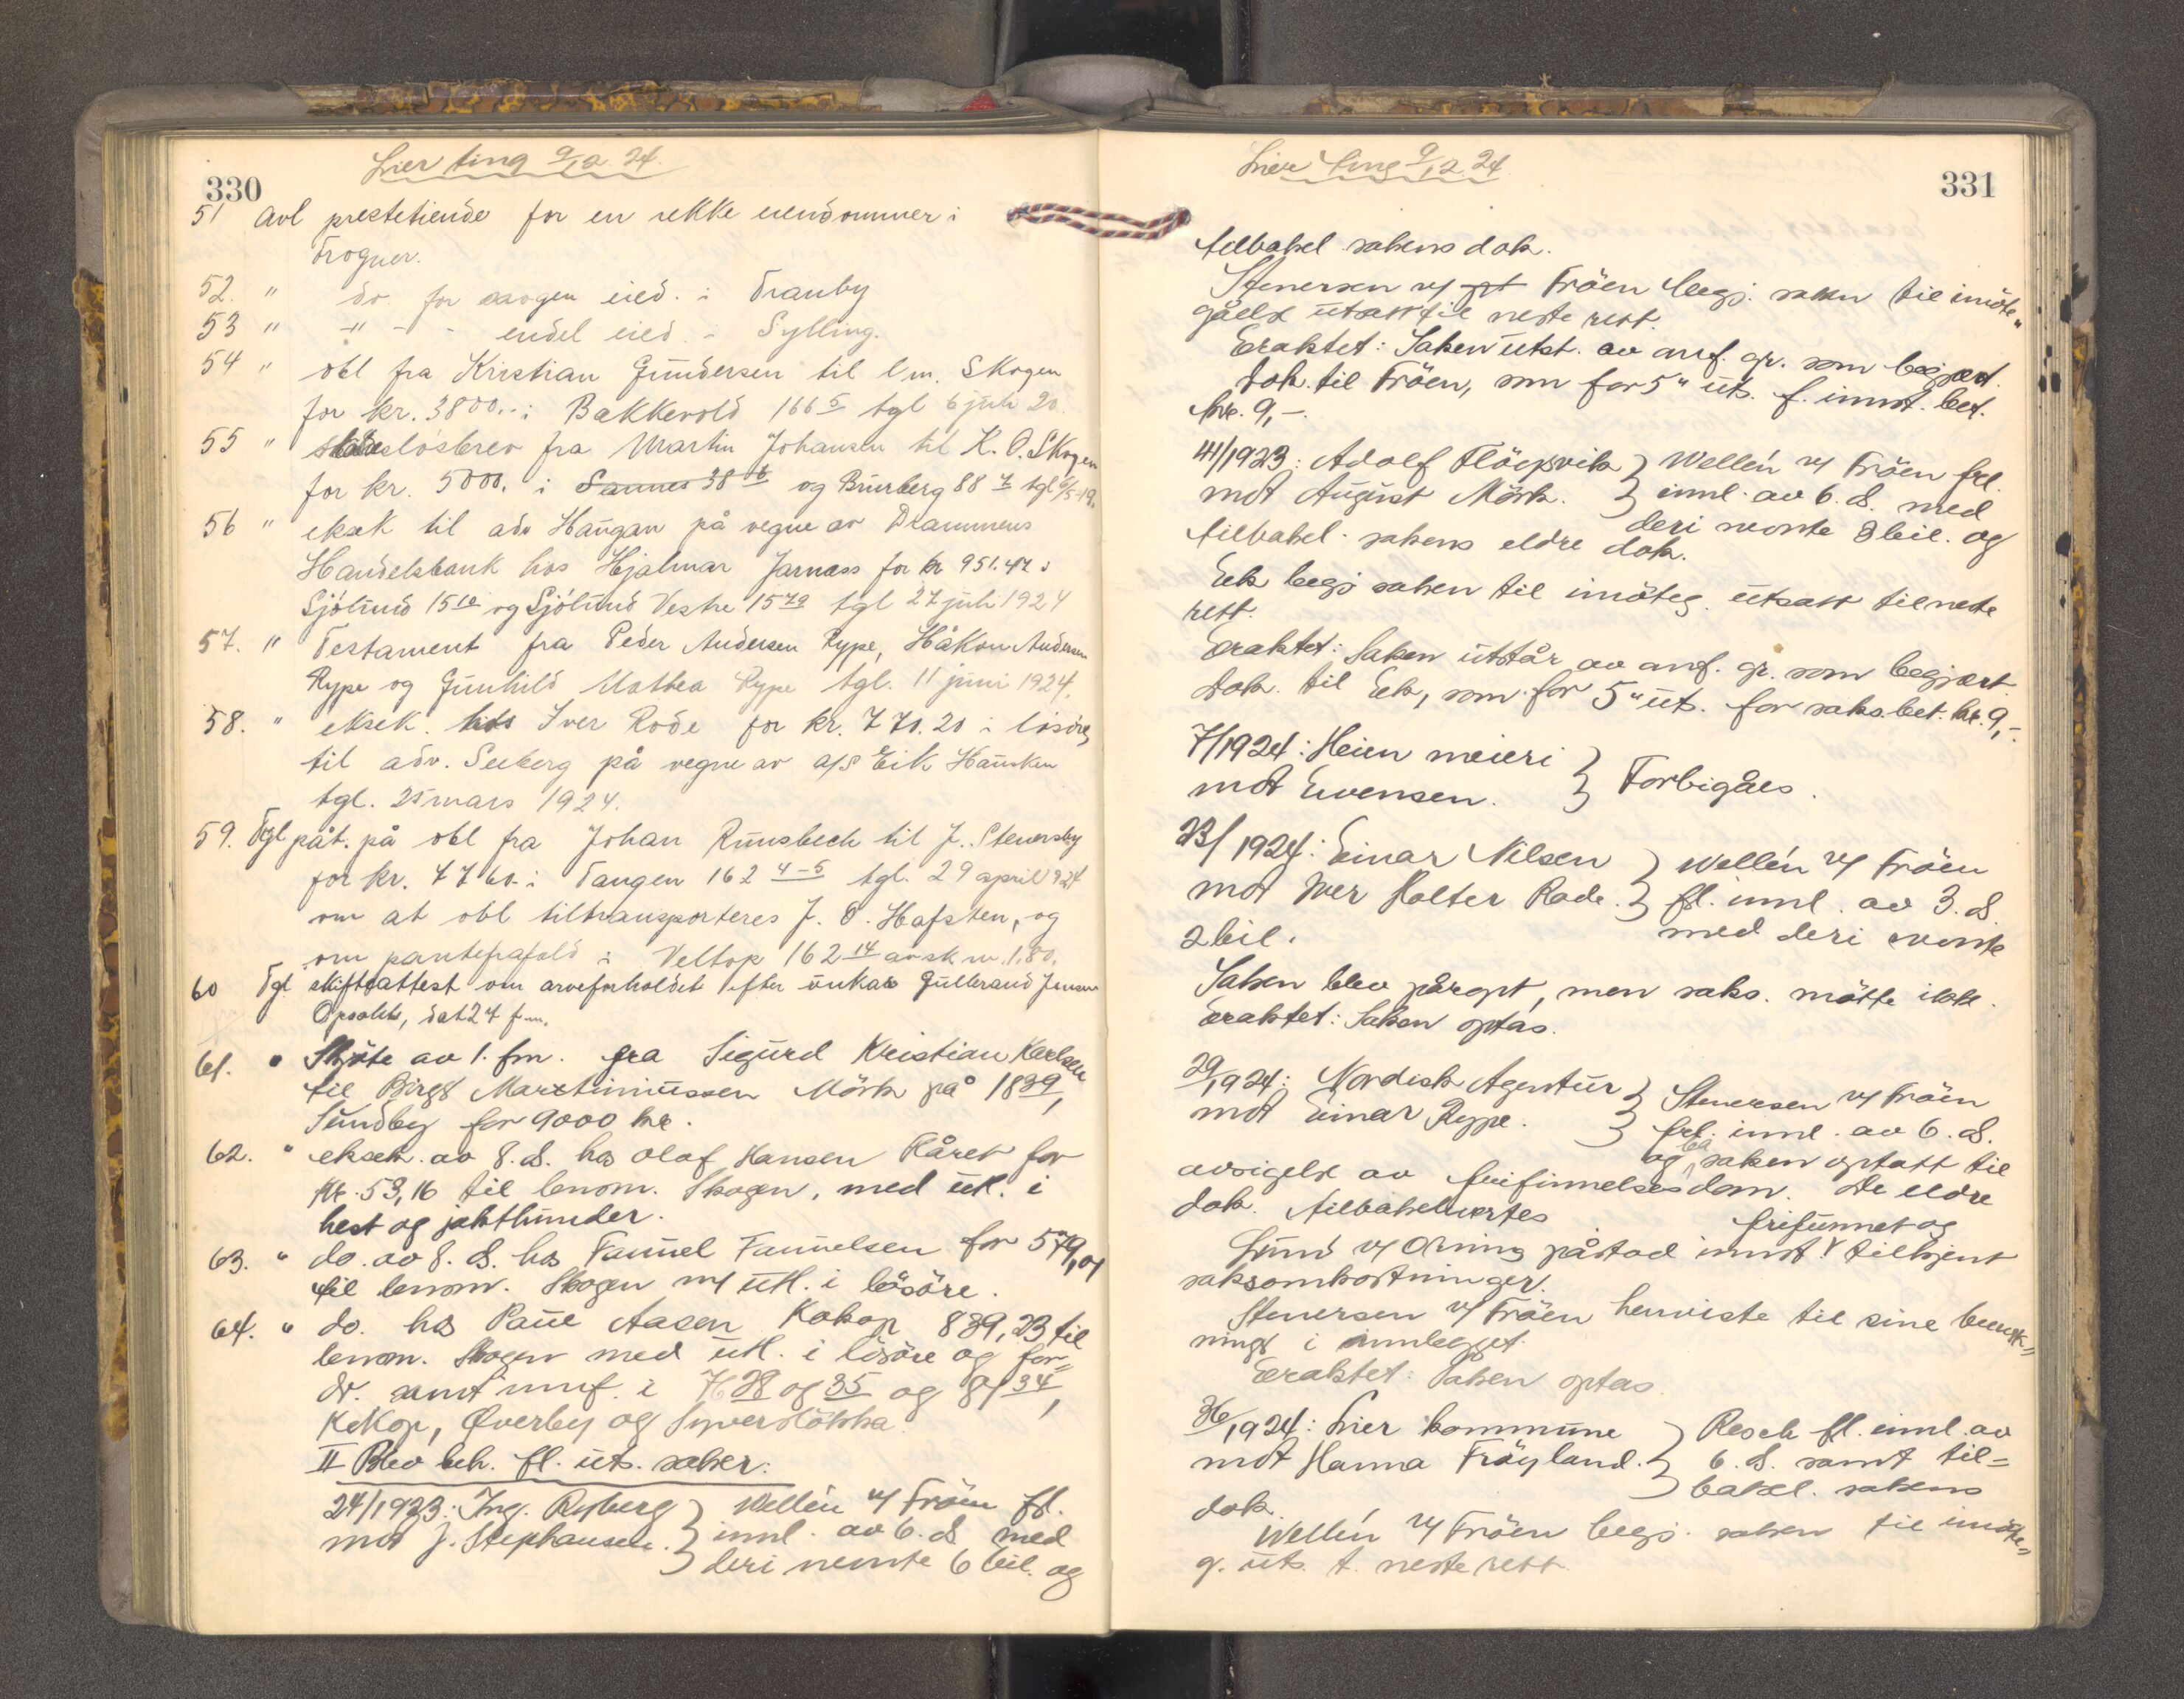 330
Lier ting 9/12.24.
51 Avl prestetiende for en rekke eiendommer i
Frogner.
52. " do. for savgen eied. i Tranby
53 " -"- - endel eied. i Sylling.
54 " obl fra Kristian Gundersen til lm. Skogen
for kr. 3800.- i Bakkevold 166 5 tgl 6 juli 20.
55 " skadeslösbrev fra Martin Johansen til K. O. Skogen
for kr. 5000. i Sannes 38 og Burberg 88 7 tgl 6/5-19.
56 " eksk til adv Haugan på vegne av Drammens
Handelsbank hos Hjalmar Jarness for kr 951.42 i
Sjölund 15 10 og Sjölund Vestre 15 79 tgl 27 juli 1924
57. " Testament fra Peder Andersen Rype, Håkon Andersen
Rype og Gunhild Mathea Rype tgl. 11 juni 1924.
58. " eksek. hos Iver Rode for kr. 770.20 i lösöre
til adv. Seeberg på vegne av a/s Eik Hausken
tgl. 25 mars 1924.
59. Tgl påt. på obl fra Johan Ruusbech til J. Stenersby
for kr. 7760.- i Tangen 162 4-5 tgl. 29 april 924
om at obl tiltransporteres J. O. Hafsten, og
om pantefrafald i Veltop 162 14 av sk m. 1.80.
60 Tgl. skifteattest om arveforholdet efter ünkas Gullerand Jensen
Opsahl, dat 27 f.m.
61. " Skjöte av 1. fm. fra Sigurd Kristian Karlsen
til Birgt Marthiniussen Mörk på 18 39,
Sundby for 9000 kr.
62. " eksek. av 8. d. hos Olaf Hansen Råret for
kr. 53,16 til lensm. Skogen, med utl. i
hest og jakthunder.
63. " do. av 8. d. hos Fannel Fannelsen for 579,01
til lensm. Skogen m/ utl. i lösöre.
64. " do. hos Paul Aasen Kokop 889,23 til
lensm. Skogen med utl. i lösöre og for=
dr. samt unnf. i 76 28 og 35 og 81 34,
Kekop, Överby og Syverslökka
II Blev beh. fl. uts. saker:
24/1923: Ing. Ryberg } Wellén v/ Fröen fl.
mot J. Stephansen. } innl. av 6. d. med
deri nevnte 6 bil. og
331
Lier ting 9/12.24
tilbakel sakens dok.
Stenersen v/ Fröen begj. saken til imöte"
gåelse utsatt til neste rett.
Eraktet: Saken utst. av anf. gr. som begjært.
Dok. til Fröen, som for 5" uts. f. innst. bet.
kr. 9,-.
41/1923: Adolf Flögsvik } Wellén v/ Fröen frl.
mot August Mörk. } innl. av 6. d. med
deri nevnte 3 bil. og
tilbakel. sakens eldre dok.
Eek begj saken til imöteg. utsatt til neste
rett.
Eraktet: Saken utstår av anf. gr. som begjært.
Dok. til Eek, som for 5" uts. for saks. bet. kr. 9,-.
7/1924: Heien meieri } Forbigåes.
mot Evensen.
23/1924: Einar Nilsen } Wellén v/ Fröen
mot Iver Holter Rode. } fl. innl. av 3. d.
med deri nevnte
2 bil.
Saken blev påropt, men saks. mötte ikke.
Eraktet: Saken optas.
29/1924: Nordisk Agentur } Stenersen v/ Fröen
mot Einar Rype. } frl. innl. av 6. d.
og ba saken optatt til
avsigelse av frifinnelsesdom. De eldre
dok. tilbakelvertes
Lund v/ Orning påstod innst. frifunnet og tilkjent
saksomkostninger.
Stenersen v/ Fröen henviste til sine bemerk=
ninger i innlegget.
Eraktet: Saken optas.
36/1924: Lier kommune } Resch fl. innl. av
mot Hanna Fröyland. } 6. d. samt til=
bakel. sakens
dok.
Wellén v/ Fröen begj. saken til imöte=
g. uts. t. neste rett.